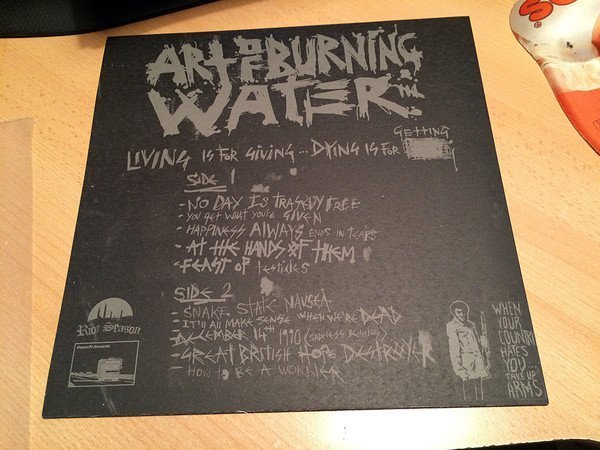 ART OF BURNING
WATER
LIVING IS FOR GIVING... DYING IS FOR GETTING
SIDE 1
- NO DAY IS TRAGEDY FREE
- YOU GET WHAT YOU'RE GIVEN
- HAPPINESS ALWAYS ENDS IN TEARS
- AT THE HANDS OF THEM
- FEAST OF testicles
SIDE 2
- SNAKE STATE NAUSEA
- IT'll ALL MAKE SENSE WHEN WE'RE DEAD
- DECEMBER 14TH 1990 (SADNESS BEGINS)
- GREAT BRITISH HOPE DESTROYER
- HOW TO BE A WORNER
Riot Season
SuperFi Records
WHEN
YOUR
COUNTRY
HATES
YOU
TAKE UP
ARMS